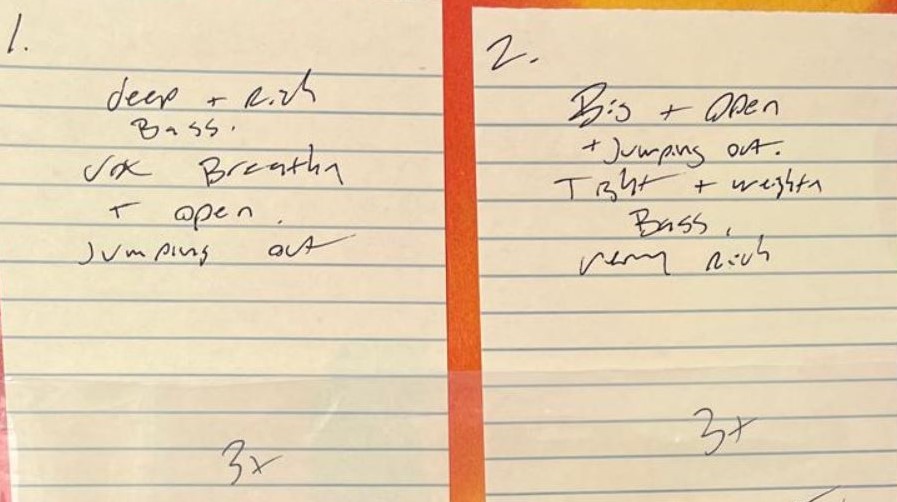 1.
deep + Rich
Bass.
Vox Breathy
+ open.
Jumping out
3+
2.
Big + Open
+ Jumping out.
Tight + weighty
Bass.
very Rich
3+